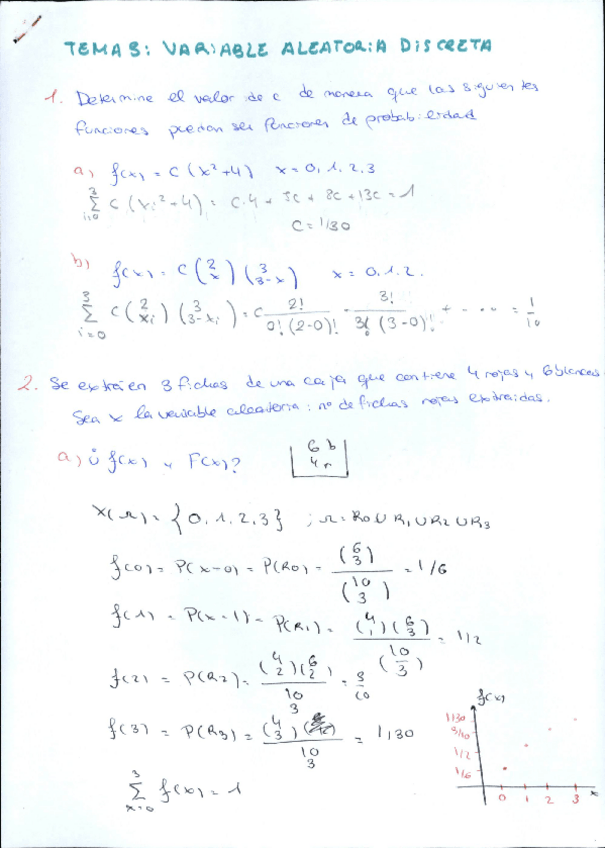 TEMA 3: VARIABLE ALEATORIA DISCRETA
1. Determine el valor de c de manera que las siguientes
funciones puedan ser funciones de probabilidad
a) f(x) = c (x² + 4) x = 0, 1, 2, 3
3
Σ c (xi² + 4) = c·4 + 5c + 8c + 13c = 1
i=0
c = 1/30
b) f(x) = c (2 x) (3 3-x) x = 0, 1, 2.
3
Σ c (2 xi) (3 3-xi) = c 2! / 0! (2-0)! · 3! / 3! (3-0)! + .... = 1/10
i=0
2. Se extraen 3 fichas de una caja que contiene 4 rojas y 6 blancas.
Sea x la variable aleatoria: nº de fichas rojas extraídas.
a) ¿ f(x) y F(x)?
6 b
4 r
X(Ω) = {0, 1, 2, 3} ; Ω = R0 ∪ R1 ∪ R2 ∪ R3
f(0) = P(x=0) = P(R0) = (6 3) / (10 3) = 1/6
f(1) = P(x=1) = P(R1) = (4 1)(6 3) / (10 3) = 1/2
f(2) = P(R2) = (4 2)(6 2) / 10 3 = 3/10
f(3) = P(R3) = (4 3) / 10 3 = 1/30
3
Σ f(x) = 1
x=0
f(x)
1/30
3/10
1/2
1/6
0 1 2 3 x